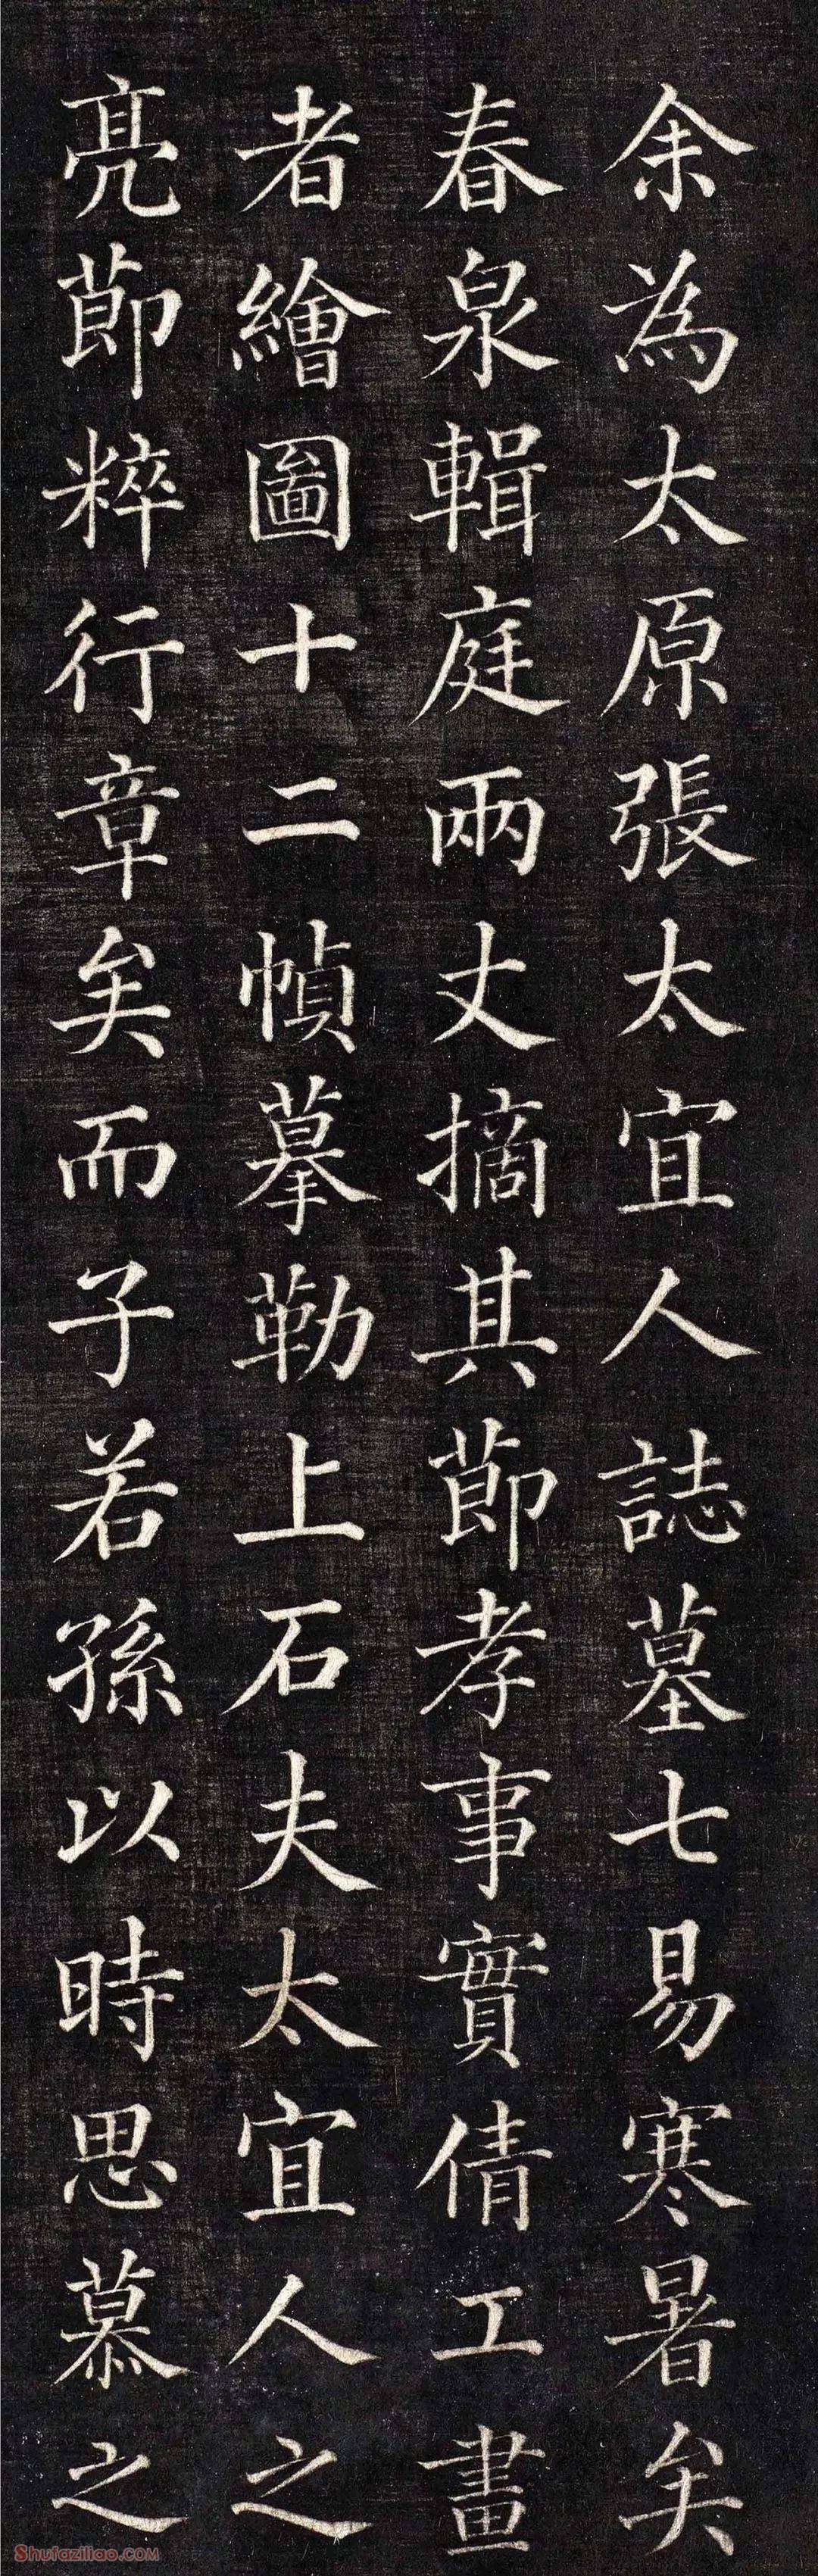 余為太原張太宜人誌墓七易寒暑矣
春泉輯庭兩丈摘其節孝事實倩工畫
者繪圖十二幀摹勒上石夫太宜人之
亮節粹行章矣而子若孫以時思慕之
Shufaziliao.com